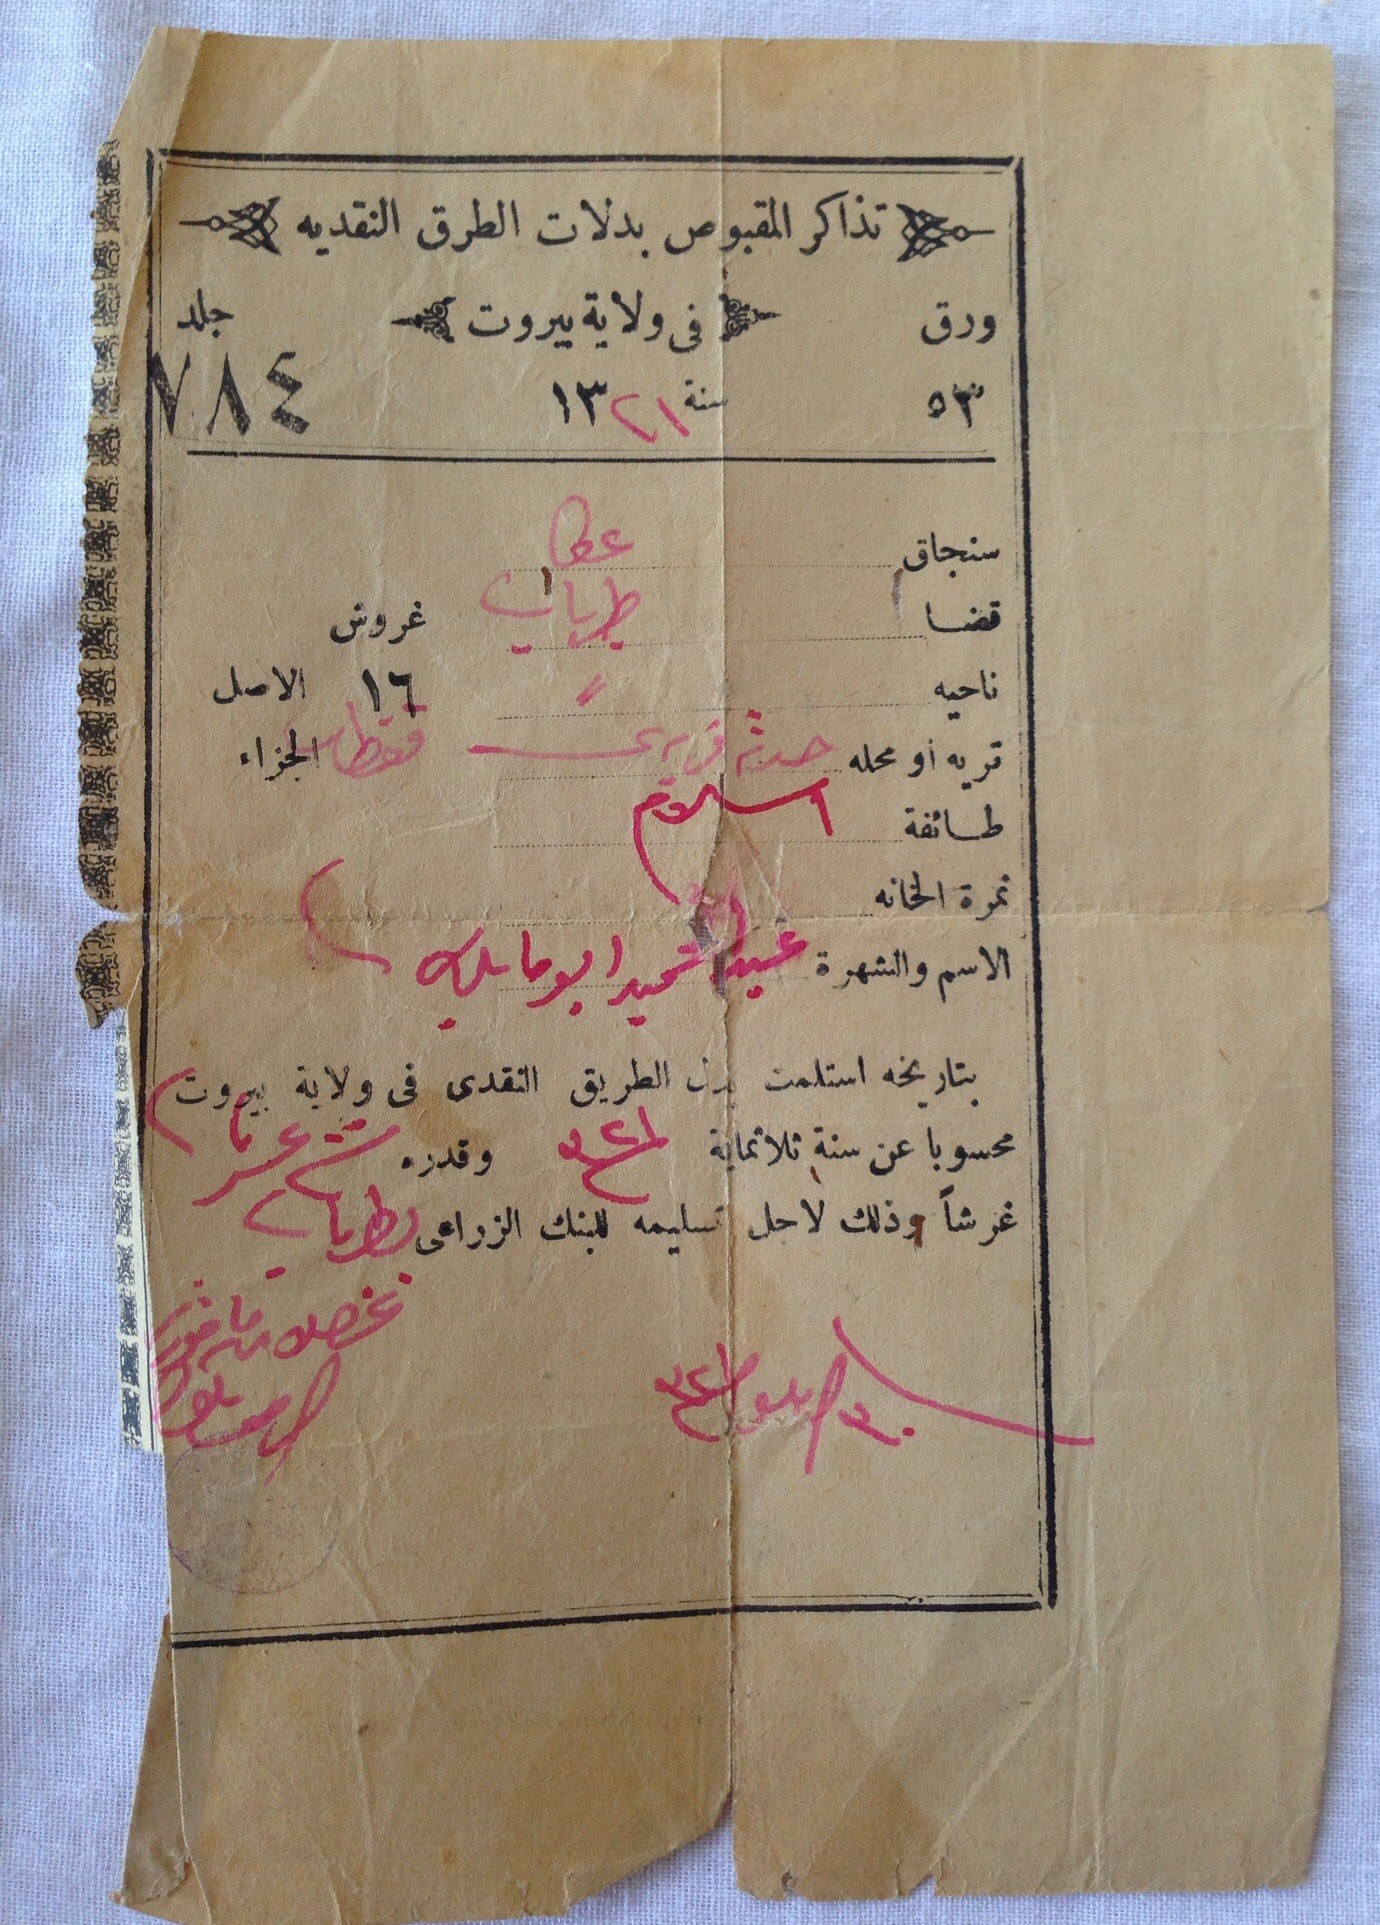 تذاكر المقبوض بدلات الطرق النقديه
ورق في ولاية بيروت جلد
٥٣ سنة ١٣٢١ ٧٨٤
سنجاق عكا
قضا طبريا غروش
ناحيه ١٦ الاصل
قريه أو محله فقط الجزاء
طائفة اسلام
نمرة الخانه
الاسم والشهرة
بتاريخه استلمت بدل الطريق النقدى فى ولاية بيروت
محسوبا عن سنة ثلاثماية ٣٢١ وقدره ستة عشر
غرشاً وذلك لاجل تسليمه للبنك الزراعى بطبريا
ايلول ٣٢١